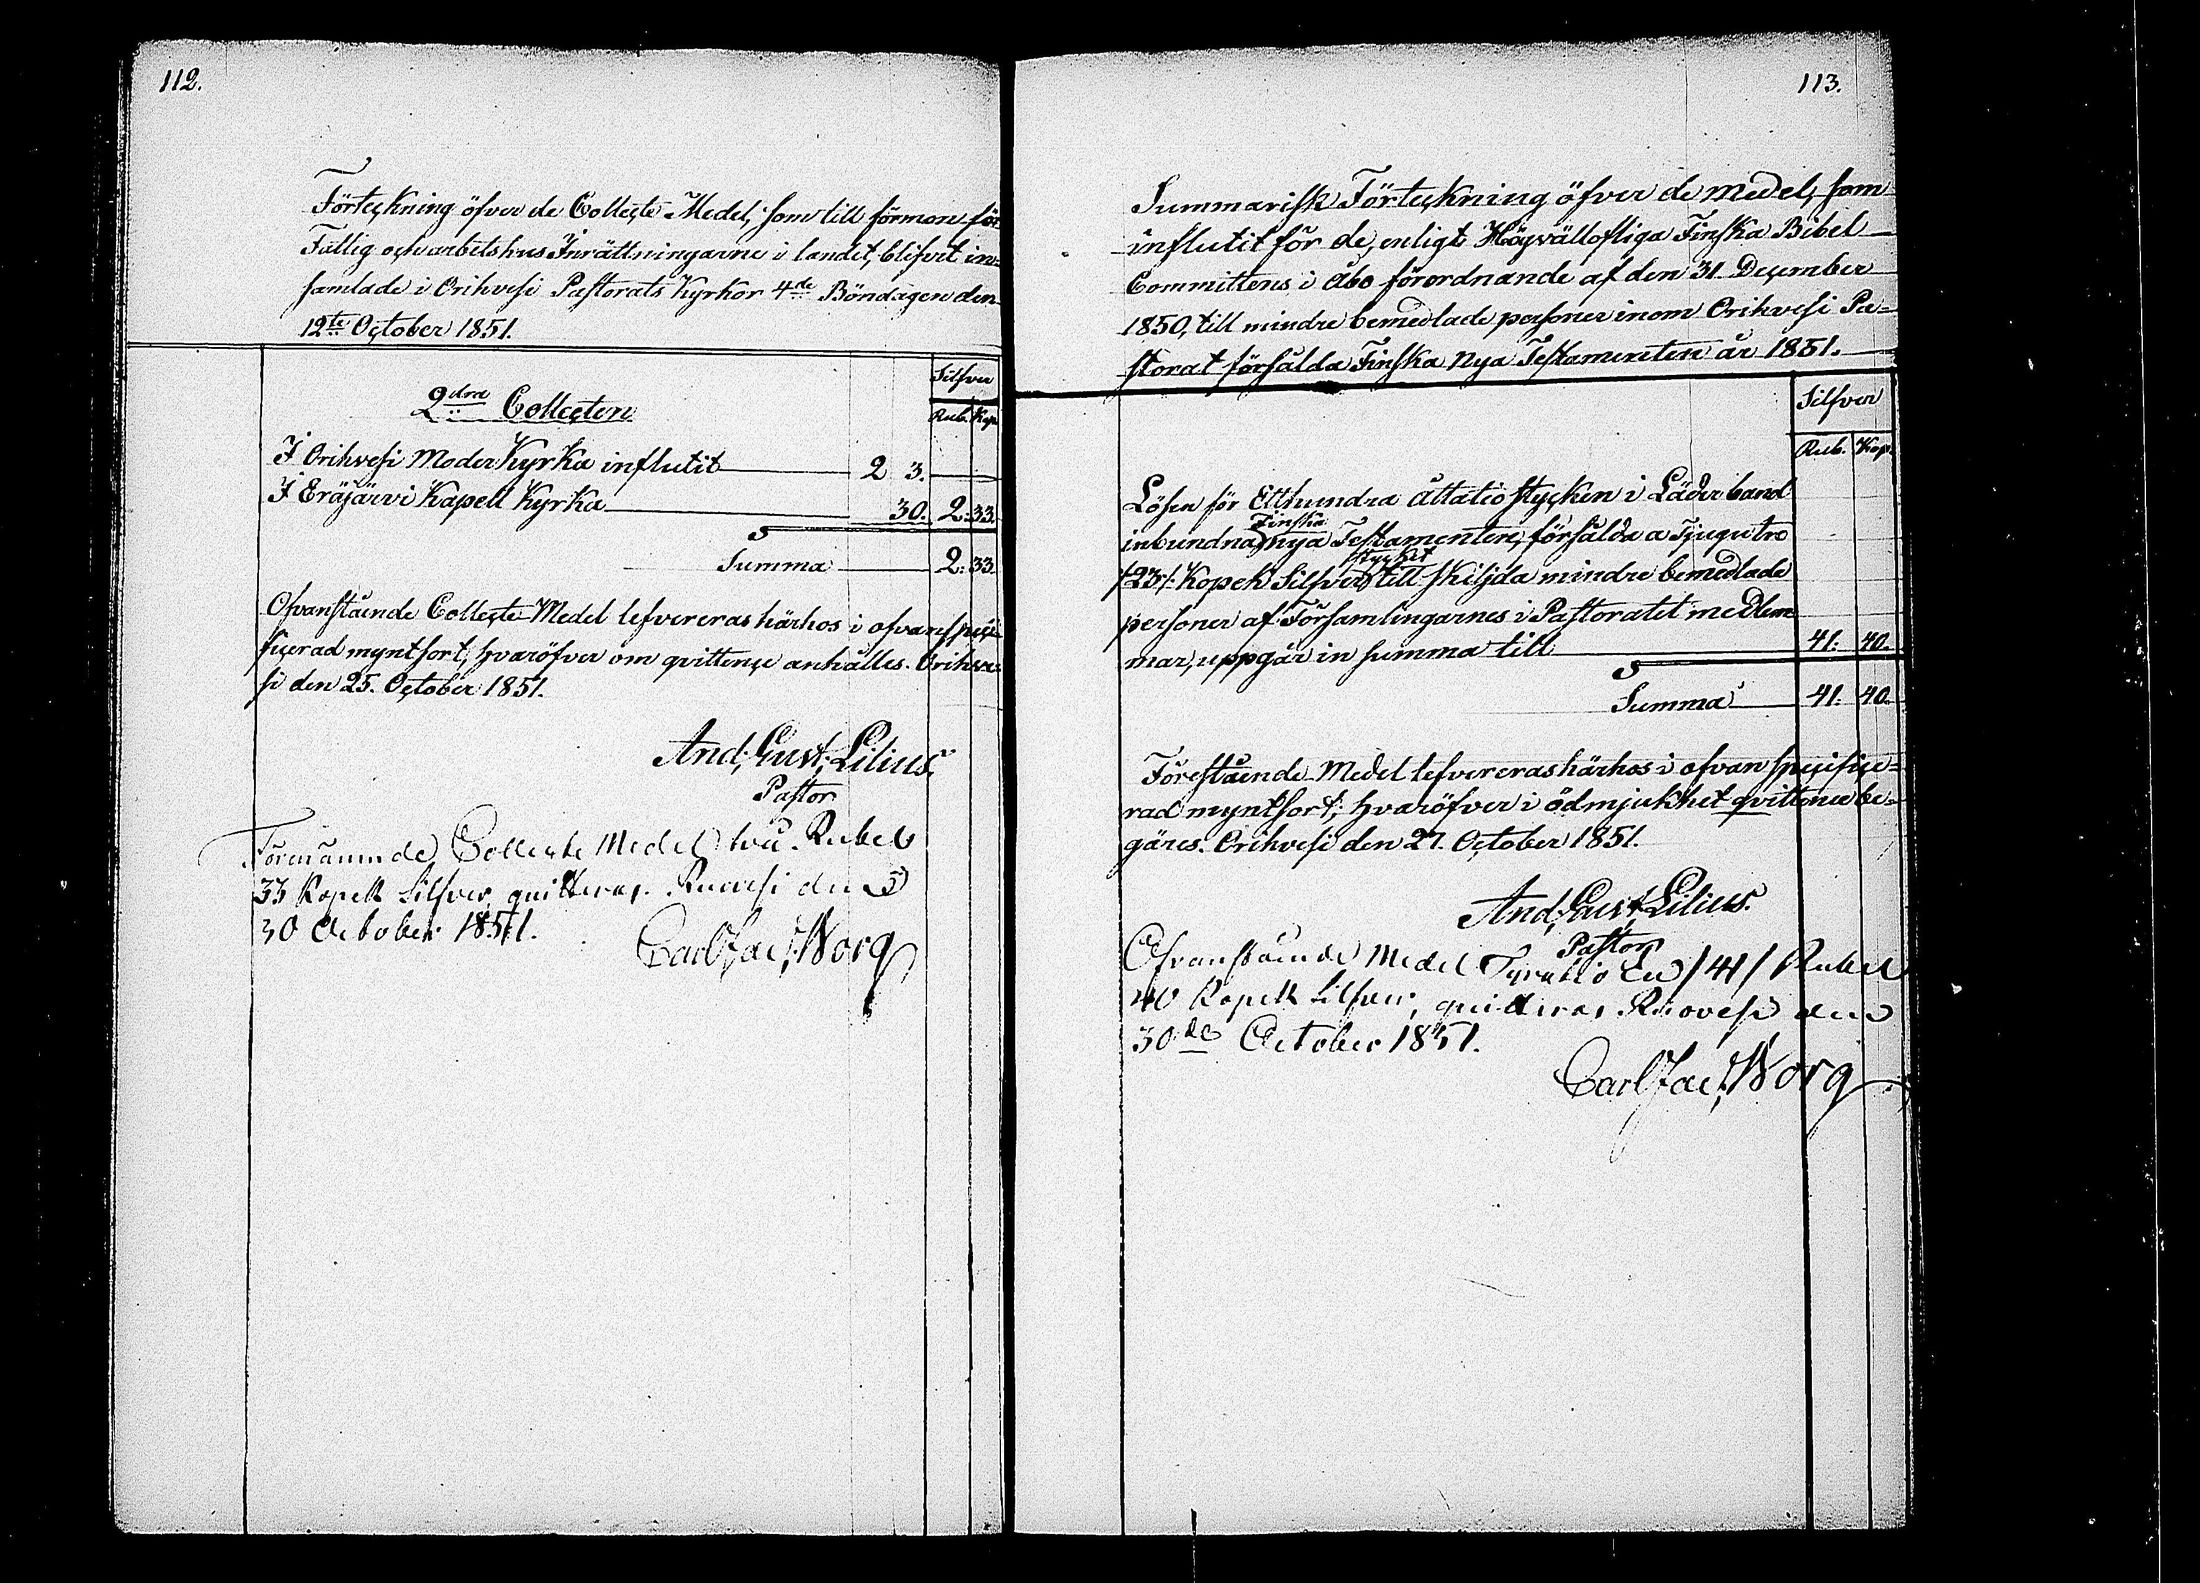 112.
Förteckning öfver de Collecte Medel, som till förmon för
Fattig och arbetshus Inrättningarne i landet, blifvit in-
samlade i Orihvesi Pastorats Kyrkor 4de Böndagen den
12te October 1851.
Silfver
Rub. Kop.
2dra Collecten
I Orihvesi Moder Kyrka influtit 2 3.
I Eräjärvi Kapell Kyrka 30. 2: 33.
Summa 2: 33.
Ofvanstående Collecte Medel lefvereras härhos i ofvanspeci-
ficerad myntsort, hvaröfver om qvittence anhålles. Orihve-
si den 25. October 1851.
And: Gust: Lilius.
Pastor
Förenämnde Collecte Medel två Rubel
33 Kopek Silfver, quitteras. Ruovesi den
30 October 1851.
Carl Jac: Worg
113.
Summarisk Förteckning öfver de medel, som
influtit för de, enligt Högvällofliga Finska Bibel
Committens i Åbo förordnande af den 31. December
1850, till mindre bemedlade personer inom Orihvesi Pa-
storat försålda Finska Nya Testamenten år 1851.
Silfver
Rub. Kop.
Lösen för Etthundra åttatio stycken i Läder band
inbundna Finska nya Testamenten, försålda a Tjugutre
/23/: Kopek Silfver stycket till skiljda mindre bemedlade
personer af Församlingarnes i Pastoratet medlem-
mar, uppgår in summa till 41: 40.
Summa 41: 40.
Förestående Medel lefvereras härhos i ofvan specifice-
rad myntsort; hvaröfver i ödmjukhet qvittence be-
gäres. Orihvesi den 27. October 1851.
And: Gust: Lilius.
Pastor
Ofvanstående Medel Fyratio En /41/ Rubel
40 Kopek Silfver, quitteras. Ruovesi den
30de October 1851.
Carl Jac: Worg